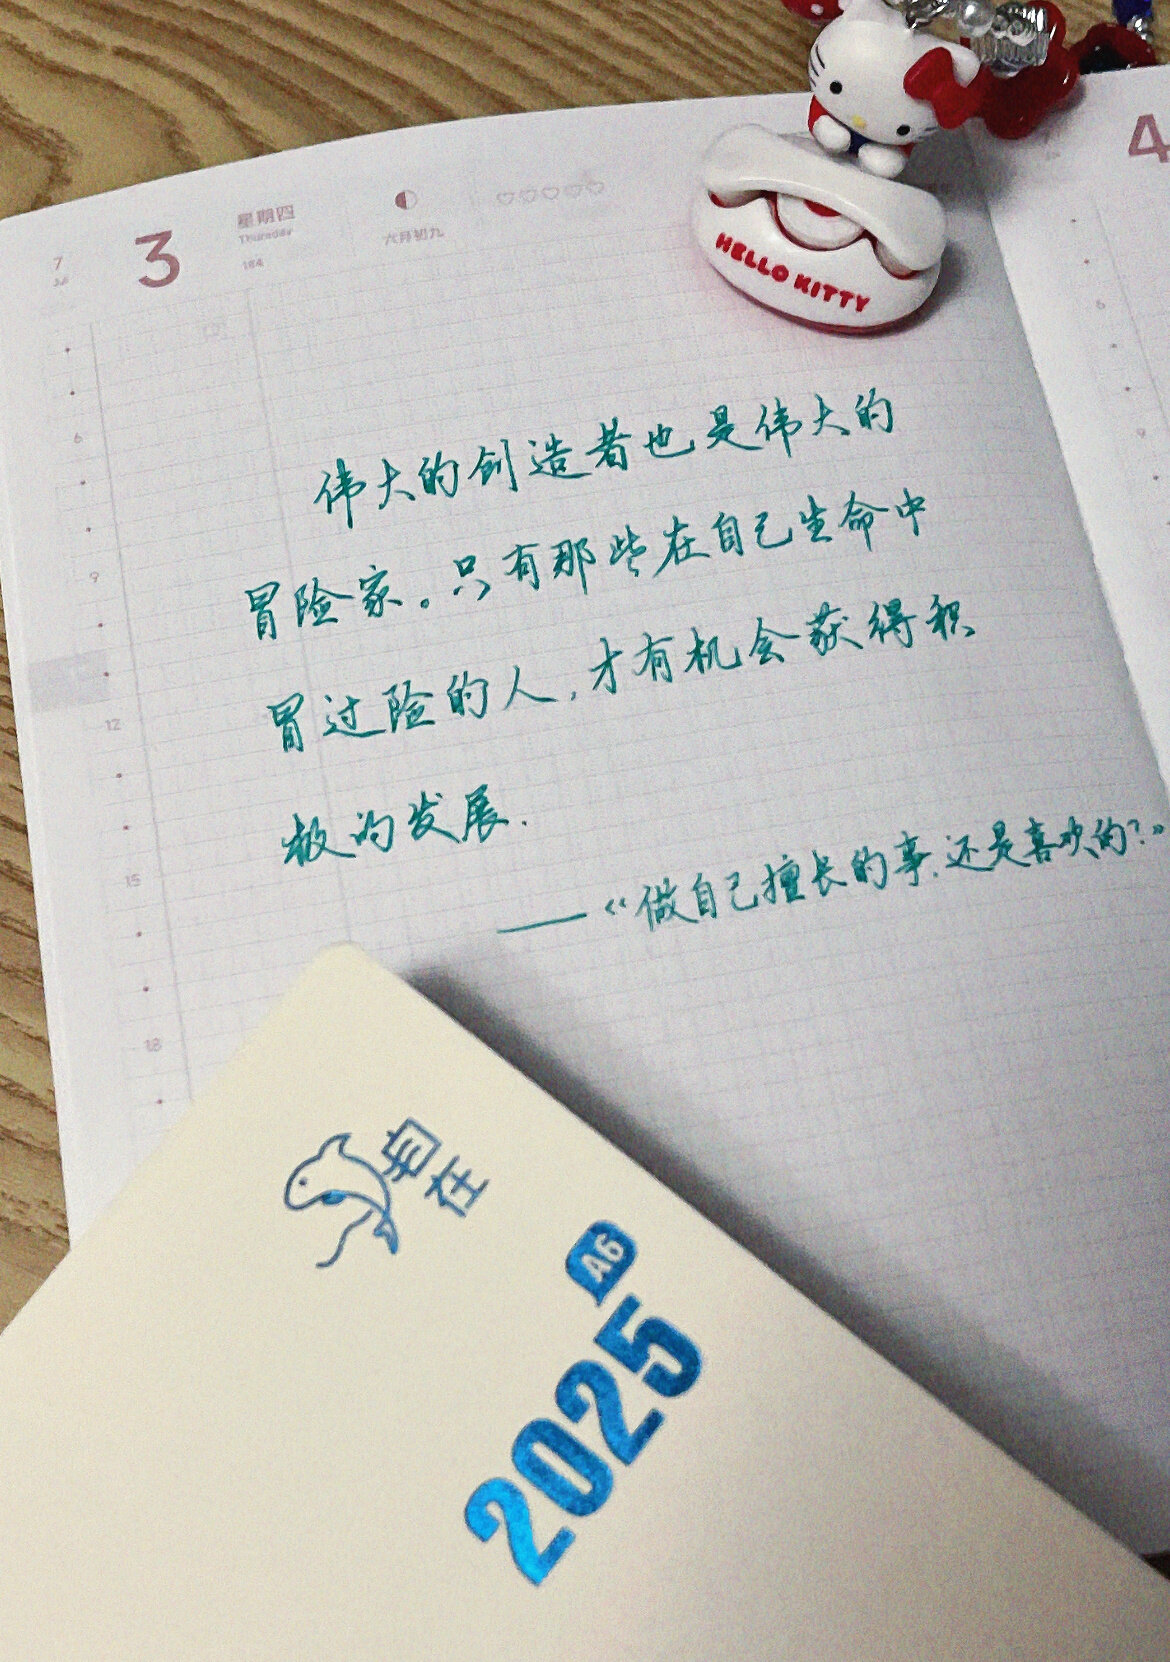 7
Jul
3
星期四
Thursday
184
六月初九
4
HELLO KITTY
6
9
12
15
18
6
9
伟大的创造者也是伟大的
冒险家。只有那些在自己生命中
冒过险的人,才有机会获得积
极的发展.
——《做自己擅长的事,还是喜欢的?》
自在
A6
2025